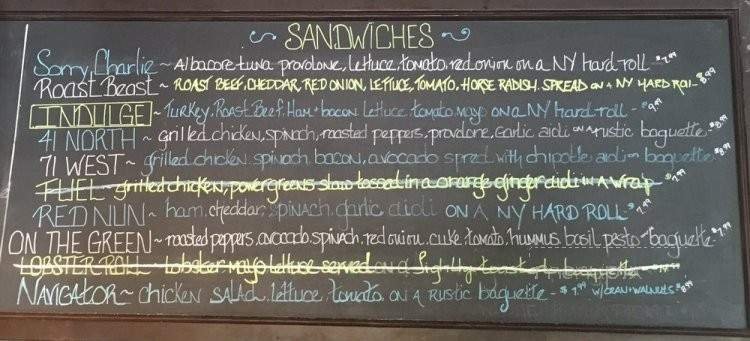 SANDWICHES
Sorry Charlie ~ Albacore tuna provolone, lettuce, tomato, red onion on a NY hard roll - $7.99
Roast Beast ~ ROAST BEEF, CHEDDAR, RED ONION, LETTUCE, TOMATO, HORSE RADISH SPREAD ON A NY HARD ROLL - $8.99
INDULGE ~ Turkey, Roast Beef, Ham + bacon lettuce tomato mayo on a NY hard roll - $9.99
41 NORTH ~ grilled chicken, spinach, roasted peppers, provolone, garlic aioli on a rustic baguette - $8.99
71 WEST ~ grilled chicken spinach bacon, avocado spred with chipotle aioli on baguette $8.99
FUEL grilled chicken, power greens slaw tossed in a orange ginger aioli IN A Wrap $7.99
RED NUN ~ ham, cheddar, spinach, garlic aioli ON A NY HARD ROLL $7.99
ON THE GREEN ~ roasted peppers, avocado, spinach, red onion, cuke, tomato, hummus basil pesto baguette - $7.99
LOBSTER ROLL - lobster mayo lettuce served on a lightly toast baguette
NAVIGATOR ~ chicken SALAD, lettuce, tomato ON A RUSTIC baguette - $7.99 w/CRAN + WALNUTS $8.99